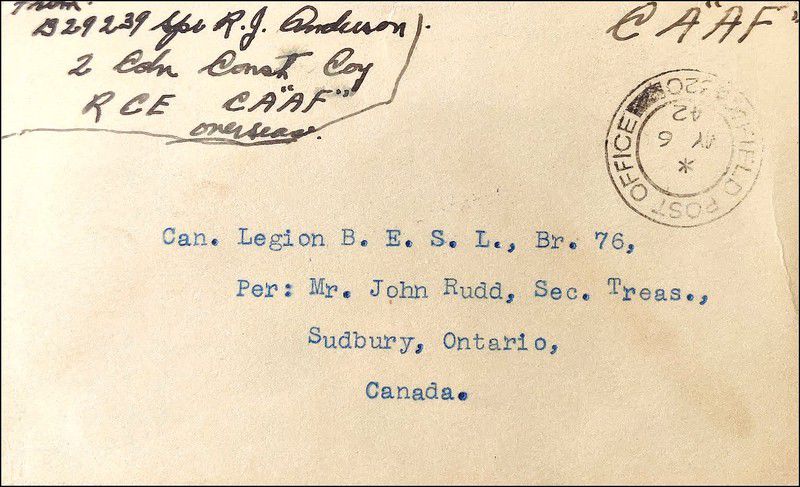 From:
B29239 Spr R.J. Anderson
2 Cdn Const Coy
RCE CA"AF"
overseas.
CA"AF"
FIELD POST OFFICE
* MY 6 42
Can. Legion B. E. S. L., Br. 76,
Per: Mr. John Rudd, Sec. Treas.,
Sudbury, Ontario,
Canada.